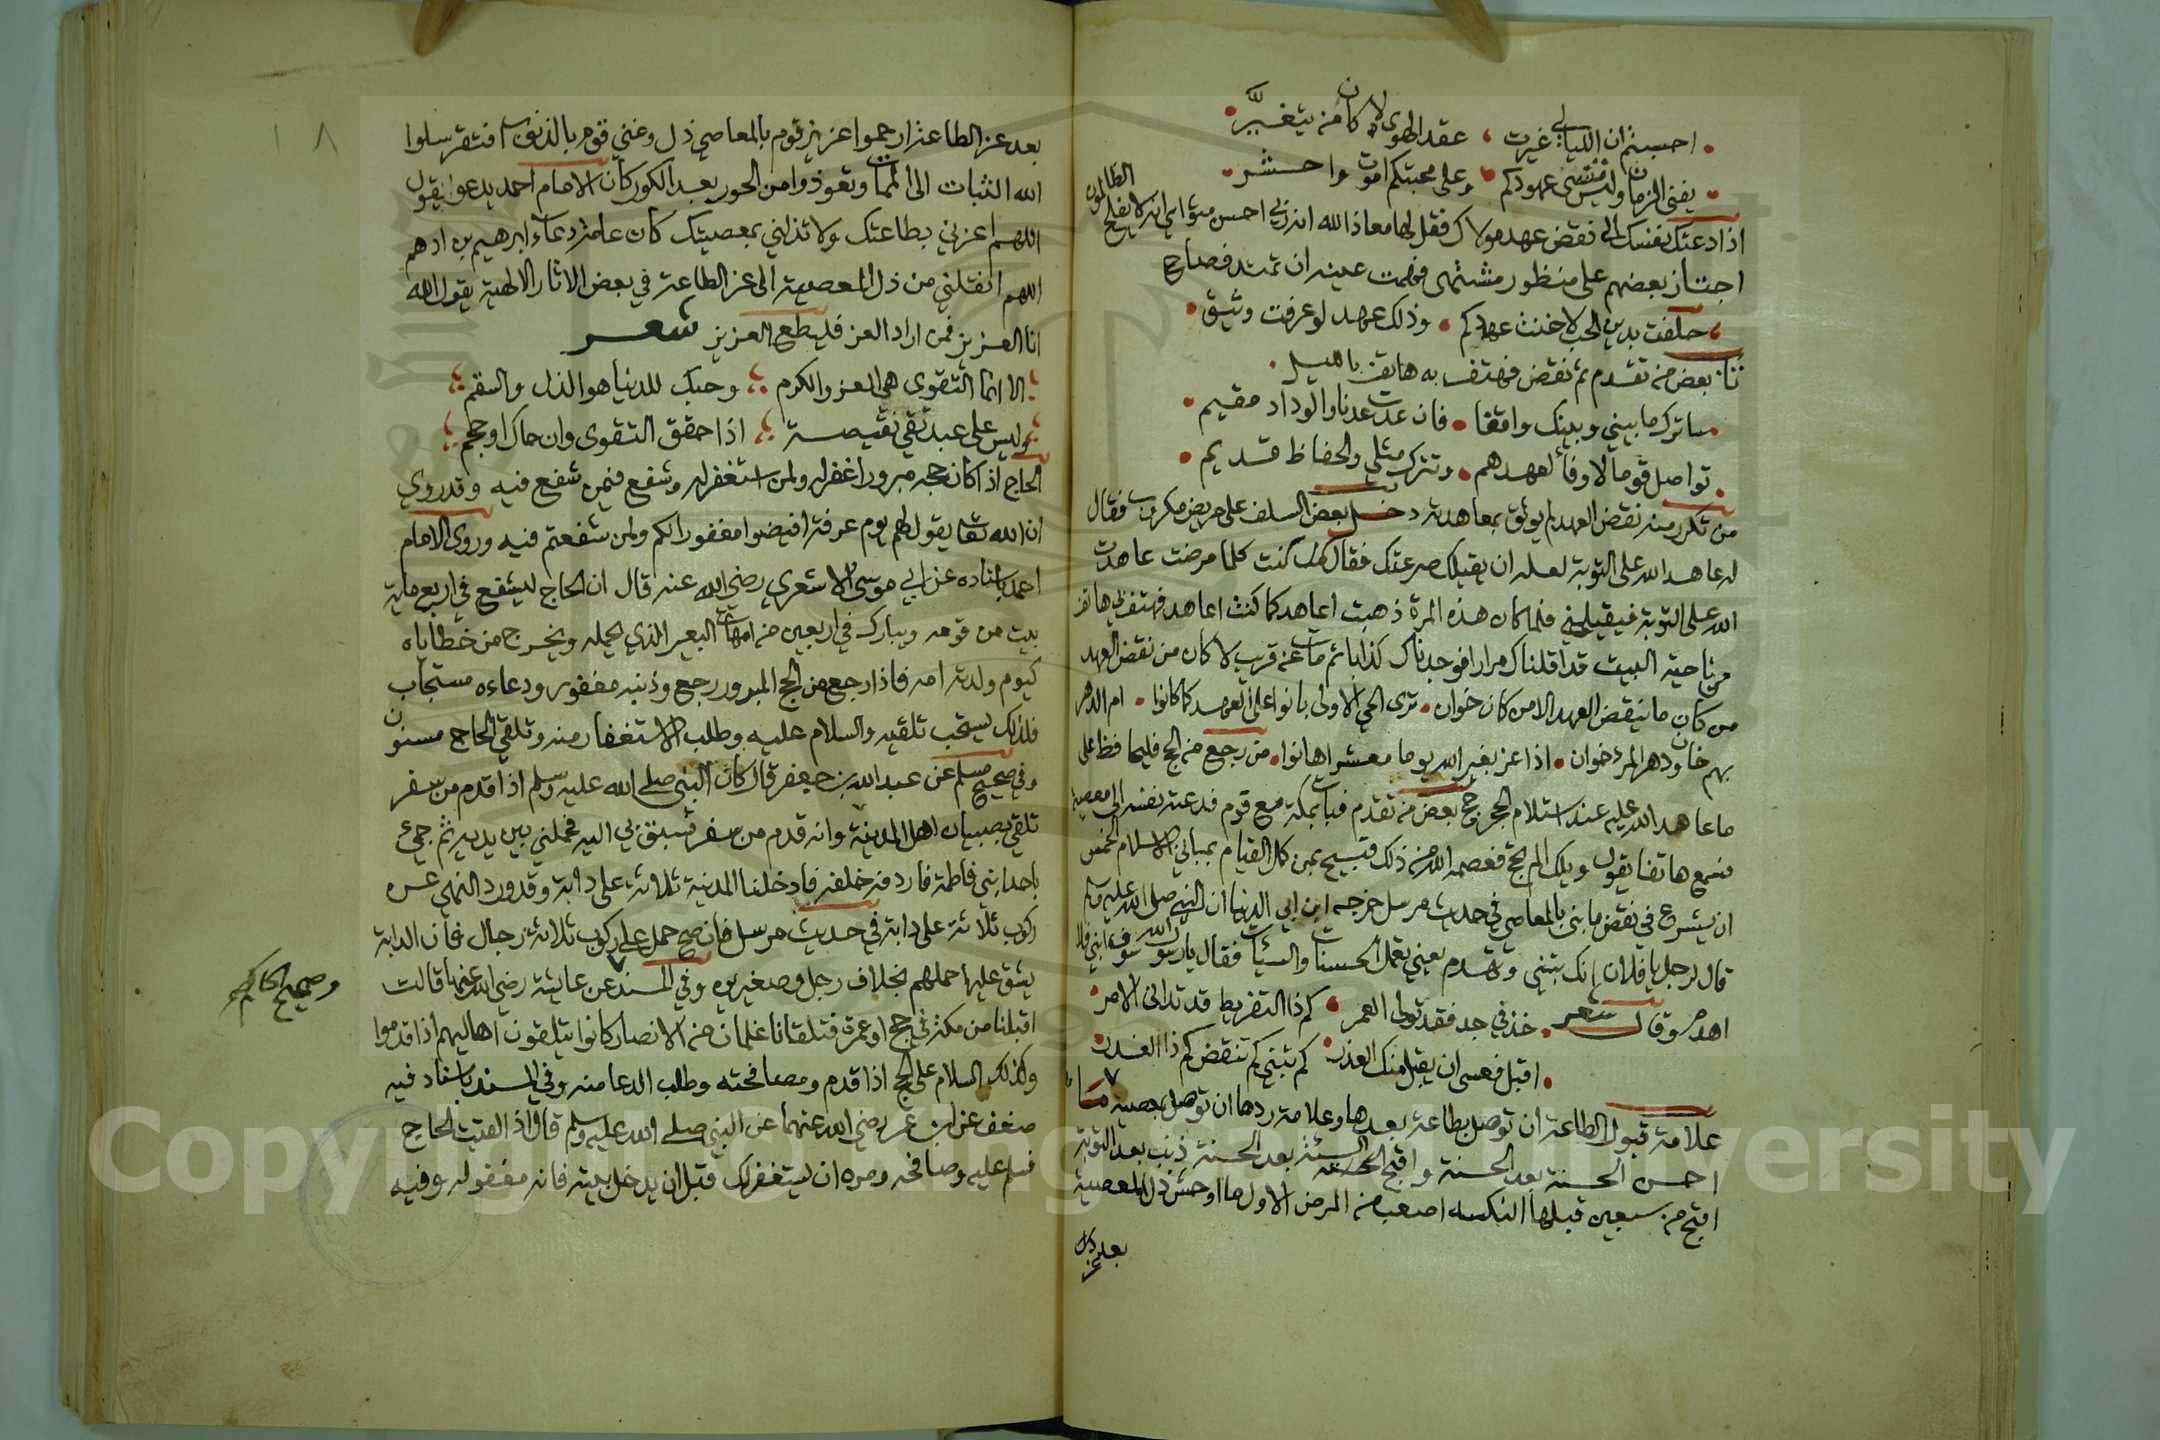 احسبتم ان الليالي غيرت عقد الهوى لا كان من يتغير
يفنى الزمان وليس ننسى عهودكم وعلى محبتكم اموت واحشر
اذا دعتك نفسك الى نقض عهد مولاك فقل لها معاذ الله انه ربي احسن مثواي انه لا يفلح الظالمون
اجتاز بعضهم على منظور مشتهى فهمت عينه ان تمتد فصاح
حلفت بدين الحب لا خنت عهدكم وذلك عهد لو عرفت وثيق
تاب بعض من تقدم ثم نقض فهتف به هاتف بالليل
ساترك ما بيني وبينك واقفا فان عدت عدنا والوداد مقيم
تواصل قوما لا وفا لعهدهم وتترك مثلي والحفاظ قديم
من تكرر منه نقض العهد لم يوثق بمعاهدته دخل بعض السلف على مريض مكروب فقال
له عاهد الله على التوبة لعله ان يقيلك صرعتك فقال كنت كلما مرضت عاهدت
الله على التوبة فيقيلني فلما كان هذه المرة ذهبت اعاهد كما كنت اعاهد فهتف بي هاتف
من ناحية البيت قد اقلناك مرارا فوجدناك كذابا ثم مات عن قريب لا كان من نقض العهد
من كان ما ينقض العهد الا من كان خوان ترى الحي الاولى بانوا على العهد كما كانوا ام الدهر
بهم خان ودهر المرء خوان اذا عز بغير الله يوما معشر اهانوا من رجع من الحج فليحافظ على
ما عاهد الله عليه عند استلام الحجر حج بعض من تقدم فبات بمكة مع قوم فدعته نفسه الى معصية
فسمع هاتفا يقول ويلك الم تحج فعصمه الله من ذلك قبيح بمن كمل القيام بمباني الاسلام الخمس
ان يشرع في نقض ما بنى بالمعاصي في حديث مرسل خرجه ابن ابي الدنيا ان النبي صلى الله عليه وسلم
قال لرجل يا فلان انك تبني وتهدم يعني تعمل الحسنات والسيئات فقال يا رسول الله سوف ابني ولا
اهدم وقال شعر خذ في جد فقد تولى العمر كم ذا التفريط قد تدانى الامر
اقبل فعسى ان يقبل منك العذر كم تبني كم تنقض كم ذا الغدر
علامة قبول الطاعة ان توصل بطاعة بعدها وعلامة ردها ان توصل بمعصية ما
احسن الحسنة بعد الحسنة واقبح السيئة بعد الحسنة ذنب بعد التوبة
اقبح من سبعين قبلها النكسة اصعب من المرض الاول ما اوحش ذل المعصية
بعد عز
١٨
بعد عز الطاعة ارحموا عزيز قوم بالمعاصي ذل وغني قوم بالذنوب افتقر سلوا
الله الثبات الى الممات وتعوذوا من الحور بعد الكور كان الامام احمد يدعو ويقول
اللهم اعزني بطاعتك ولا تذلني بمعصيتك كان عامة دعاء ابرهيم بن ادهم
اللهم انقلني من ذل المعصية الى عز الطاعة في بعض الاثار الالهية يقول الله
انا العزيز فمن اراد العز فليطع العزيز شعر
الا انما التقوى هي العز والكرم وحبك للدنيا هو الذل والسقم
وليس على عبد تقي نقيصة اذا حقق التقوى وان حاك او حجم
الحاج اذا كان حجه مبرورا غفر له ولمن استغفر له وشفع فيمن شفع فيه وقد روي
ان الله تعا يقول لهم يوم عرفة افيضوا مغفورا لكم ولمن شفعتم فيه وروى الامام
احمد باسناده عن ابي موسى الاشعري رضي الله عنه قال ان الحاج ليشفع في اربع ماية
بيت من قومه ويبارك في اربعين من امهات البعير الذي يحمله ويخرج من خطاياه
كيوم ولدته امه فاذا رجع من الحج المبرور رجع وذنبه مغفور ودعاءه مستجاب
فلذلك يستحب تلقيه والسلام عليه وطلب الاستغفار منه وتلقي الحاج مسنون
وفي صحيح مسلم عن عبد الله بن جعفر قال كان النبي صلى الله عليه وسلم اذا قدم من سفر
تلقي بصبيان اهل المدينة وانه قدم من سفر فسبق بي اليه فحملني بين يديه ثم جيء
باحد ابني فاطمة فاردفه خلفه فادخلنا المدينة ثلاثة على دابة وقد ورد النهي عن
ركوب ثلاثة على دابة في حديث مرسل فان صح حمل على ركوب ثلاثة رجال فان الدابة
يشق عليها حملهم بخلاف رجل وصغيرين وفي المسند عن عايشة رضي الله عنها قالت
وصحيح الحاكم
اقبلنا من مكة في حج او عمرة فتلقانا غلمان من الانصار كانوا يتلقون اهاليهم اذا قدموا
وكذلك السلام على الحج اذا قدم ومصافحته وطلب الدعا منه وفي المسند باسناد فيه
ضعف عن ابن عمر رضي الله عنهما عن النبي صلى الله عليه وسلم قال اذا لقيت الحاج
فسلم عليه وصافحه ومره ان يستغفر لك قبل ان يدخل بيته فانه مغفور له وفيه
Copyright © King Saud University